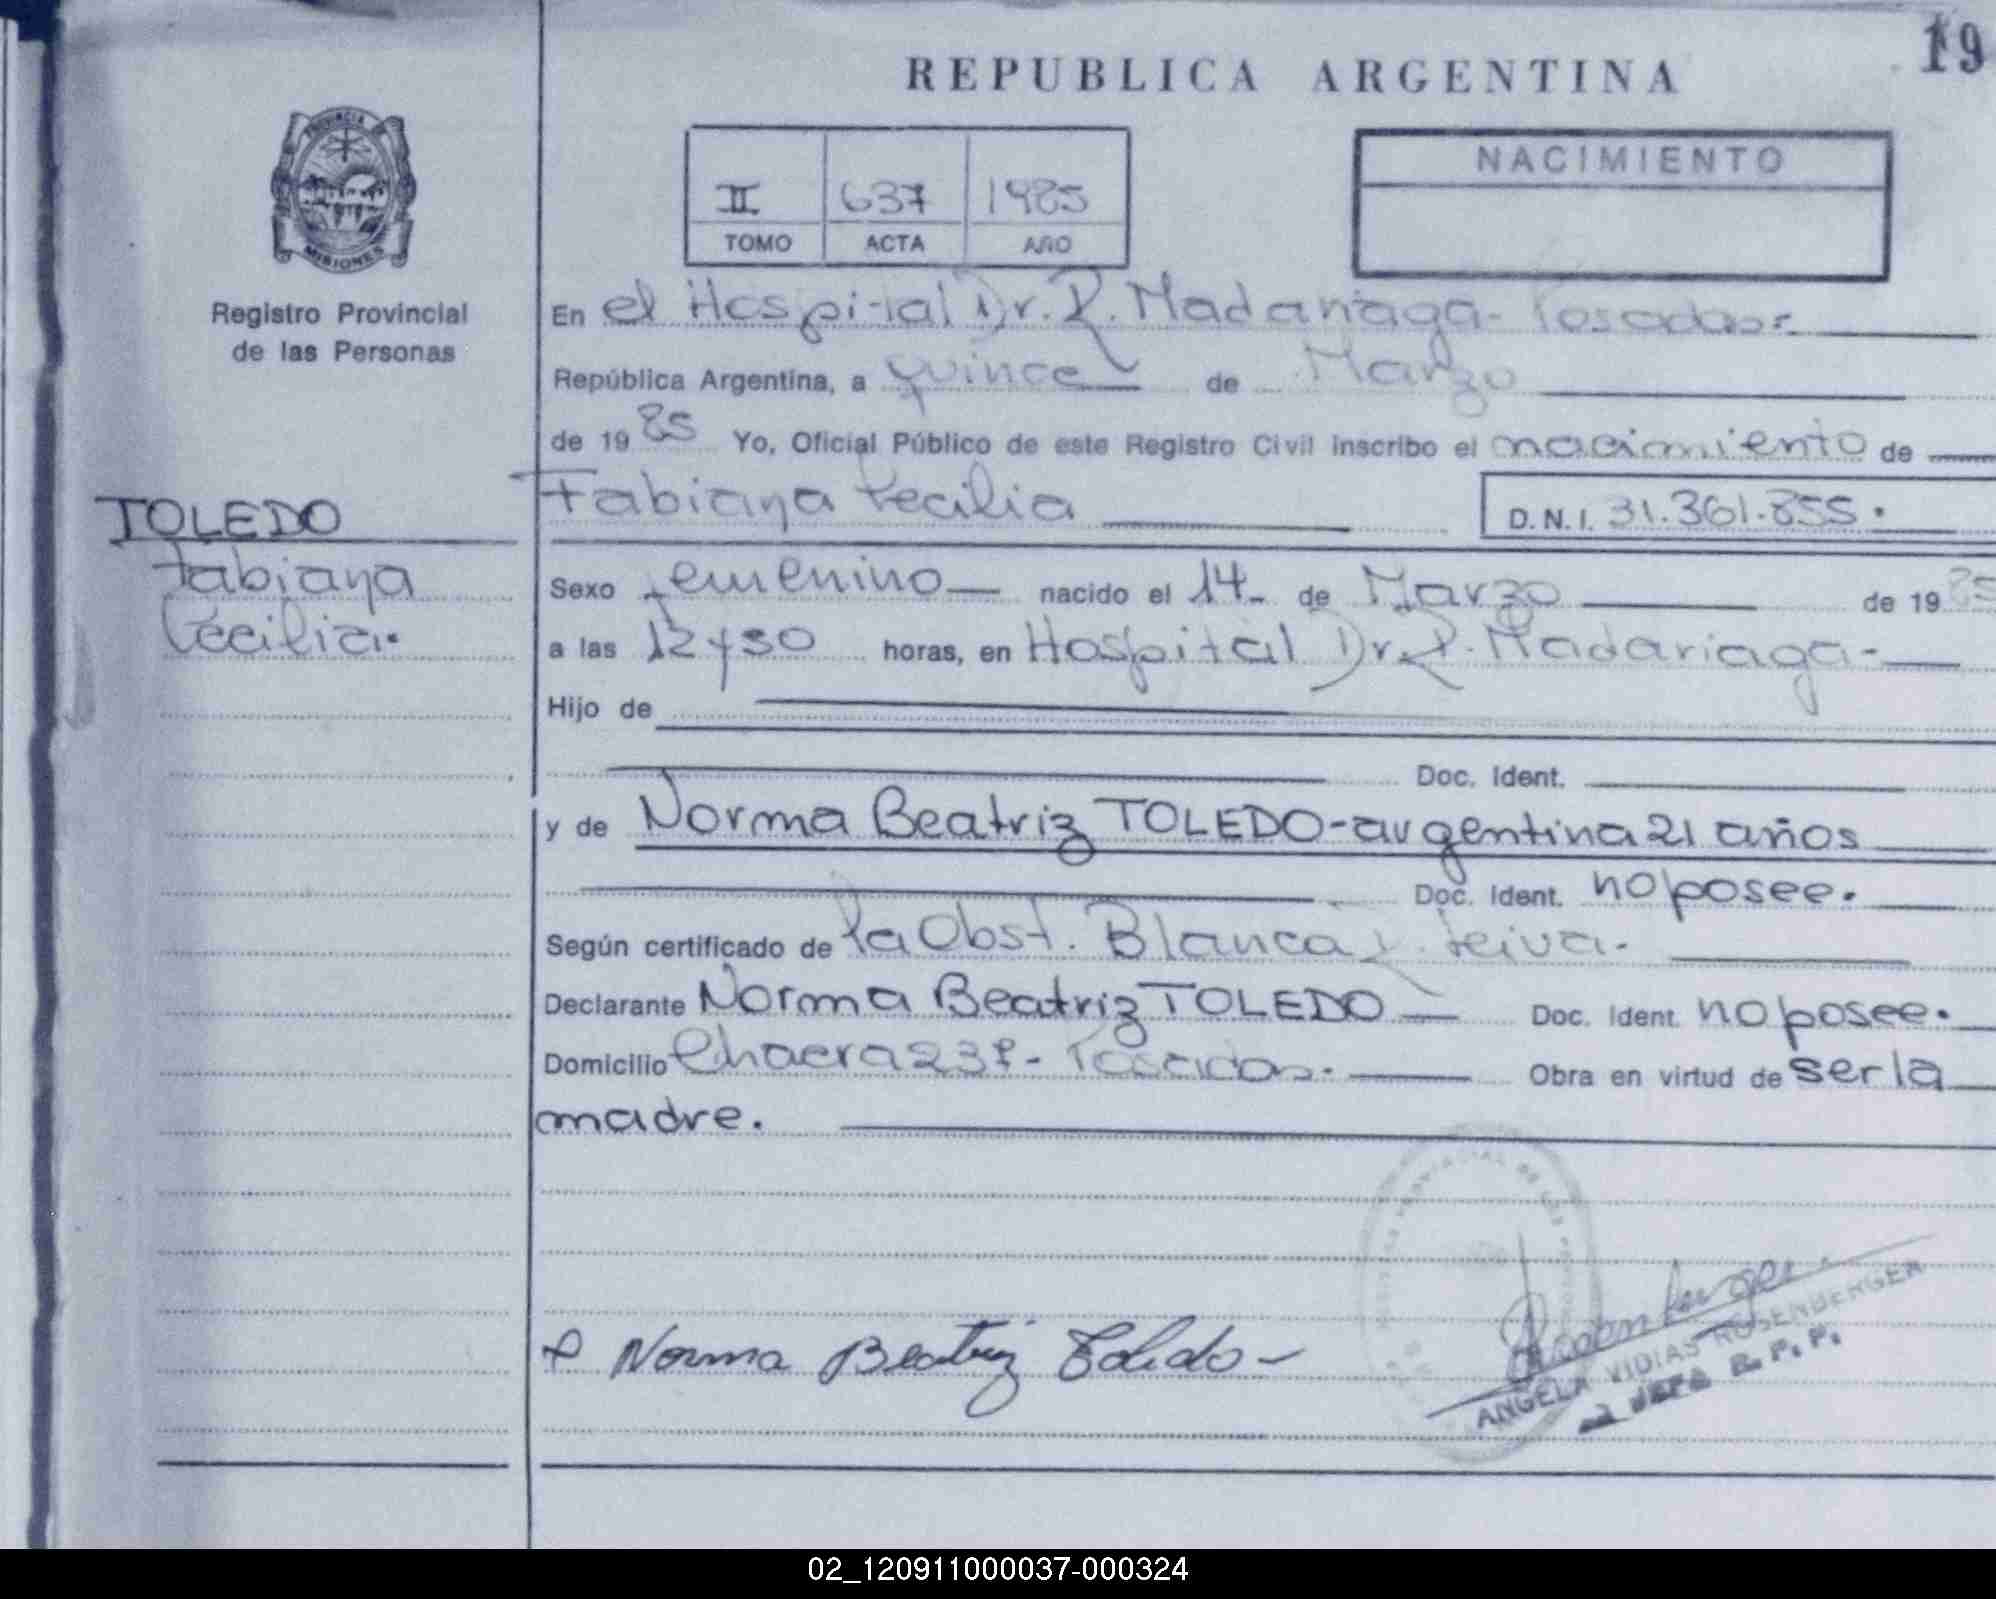 19
REPUBLICA ARGENTINA
PROVINCIA
MISIONES
II 637 1985
TOMO ACTA AÑO
NACIMIENTO
Registro Provincial
de las Personas
En el Hospital Dr. R. Madariaga - Posadas.-
República Argentina, a quince de Marzo
de 1985 Yo, Oficial Público de este Registro Civil inscribo el nacimiento de
Fabiana Cecilia D.N.I. 31.361.855.
TOLEDO
Fabiana
Cecilia.
Sexo femenino nacido el 14 de Marzo de 1985
a las 12 y 30 horas, en Hospital Dr. R. Madariaga -
Hijo de
Doc. Ident.
y de Norma Beatriz TOLEDO - argentina 21 años
Doc. Ident. no posee.
Según certificado de la Obst. Blanca
Declarante Norma Beatriz TOLEDO Doc. Ident. no posee.
Domicilio Chacra - Posadas. Obra en virtud de ser la
madre.
Norma Beatriz Toledo
ANGELA VIDIAS ROSENBERGER
JEFA R. P. P.
02_120911000037-000324